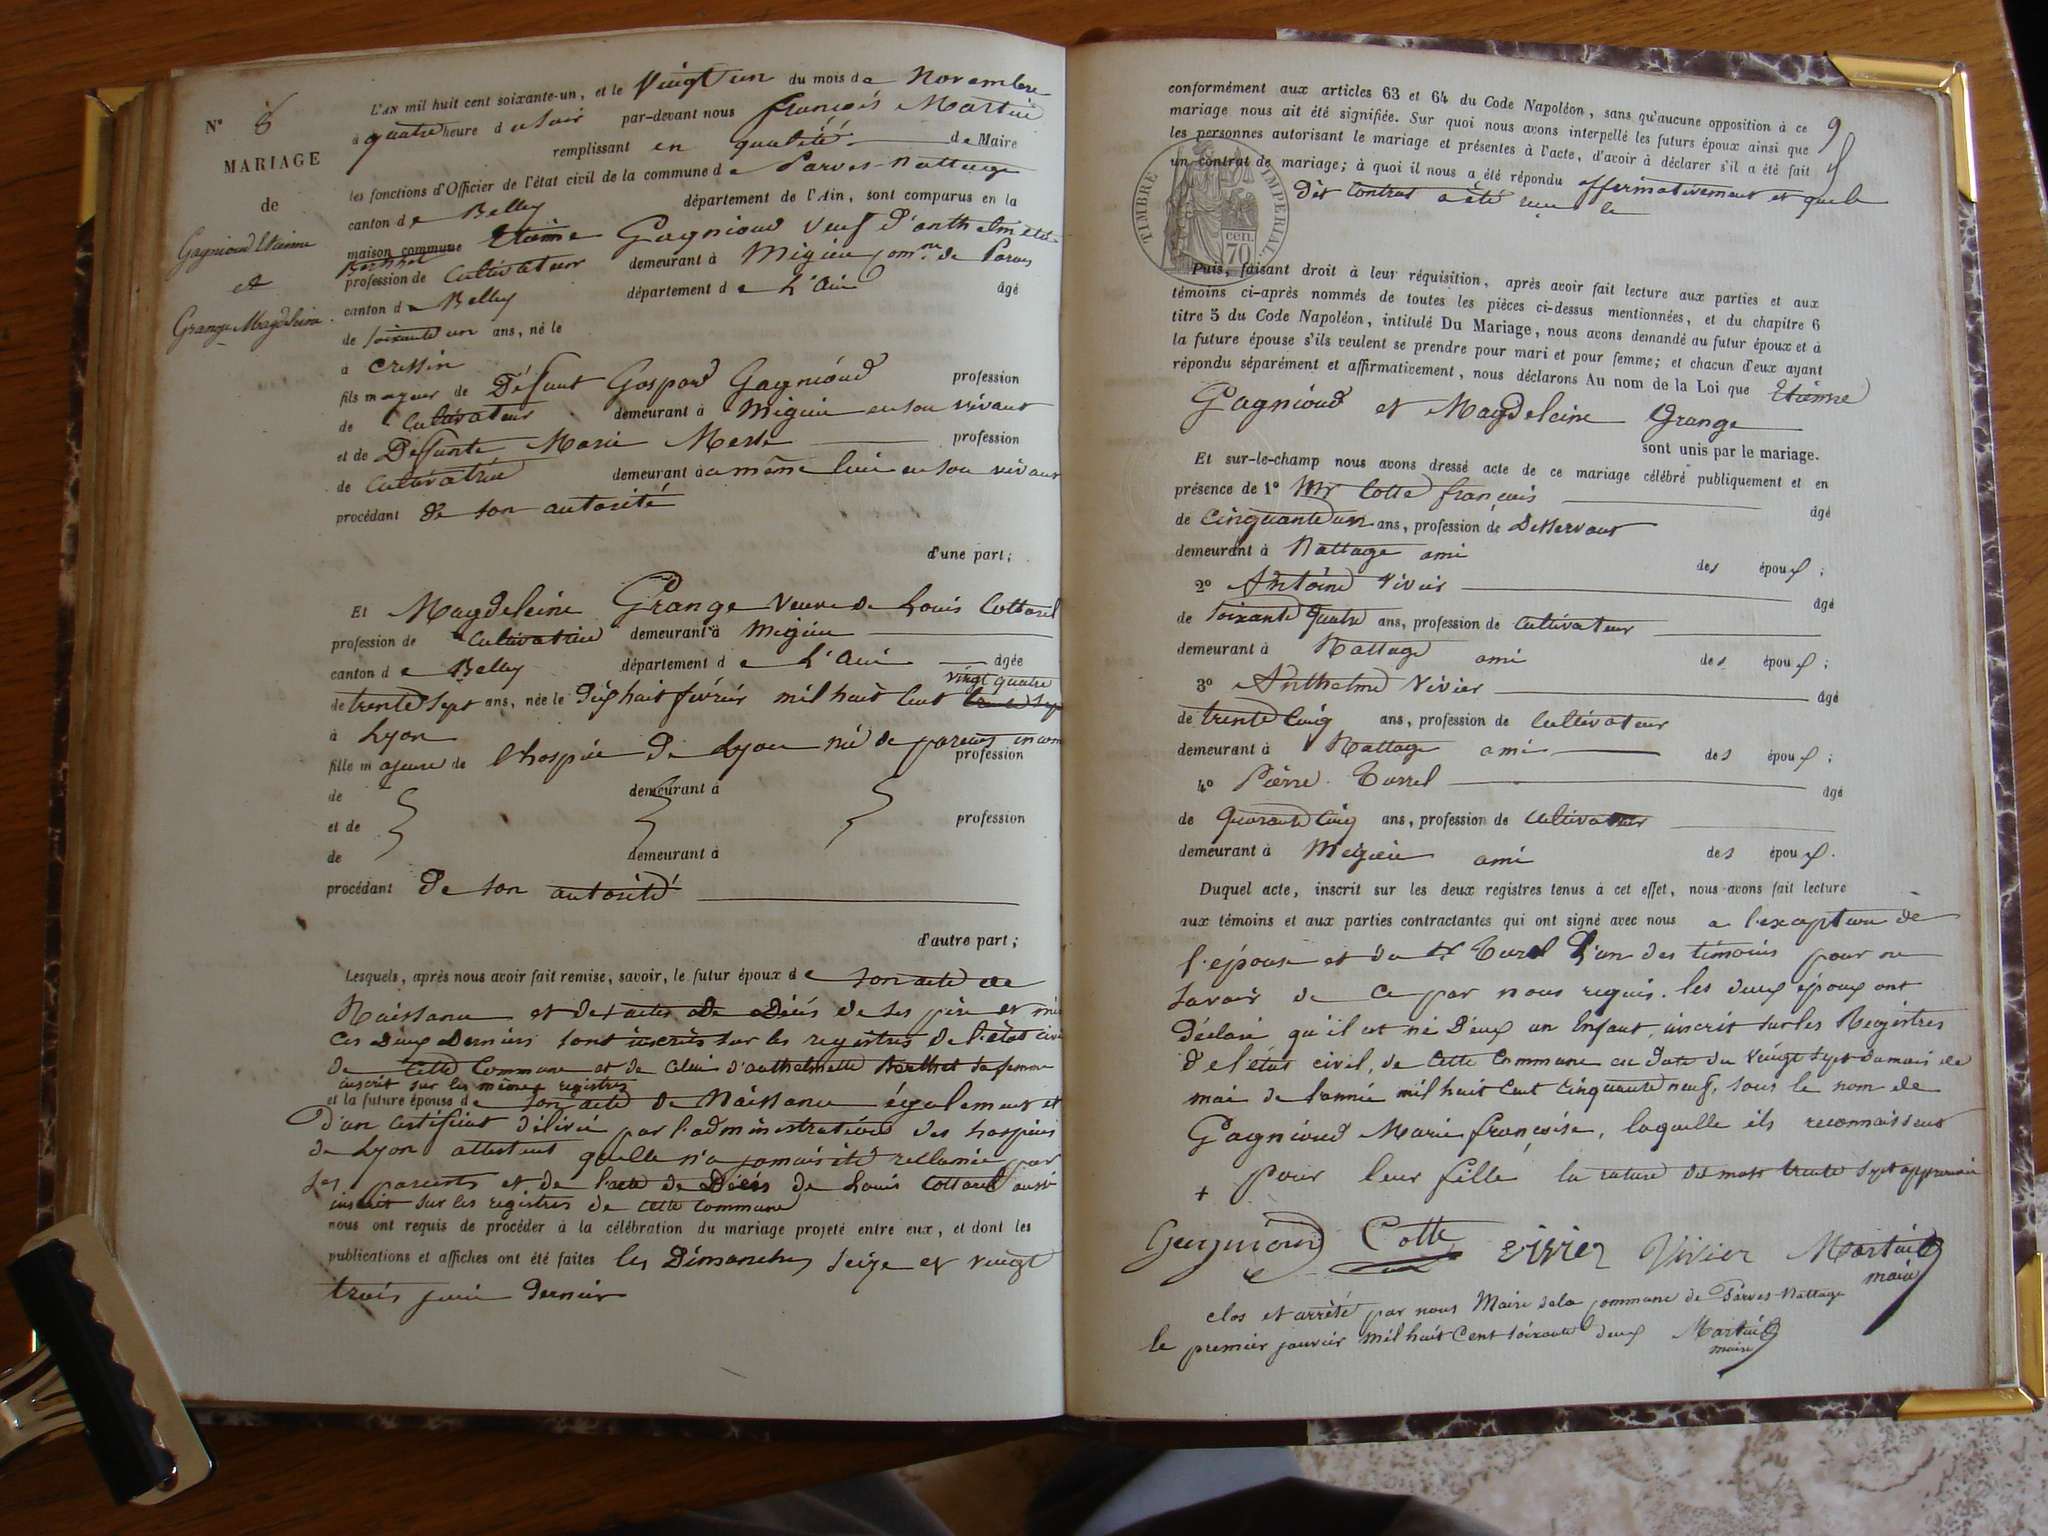 N° 8
MARIAGE
de
Gagnioud Etienne
et
Grange Magdeleine.
L'an mil huit cent soixante-un, et le Vingt un du mois de Novembre
à quatre heure du soir par-devant nous françois Martin
remplissant en qualité de Maire
les fonctions d'Officier de l'état civil de la commune de Parves-Nattage
canton de Belley département de l'Ain, sont comparus en la
maison commune Etienne Gagnioud veuf d'anthelmette
Berthet
profession de cultivateur demeurant à Migieu comne de Parves
canton de Belley département de L'ain âgé
de soixante un ans, né le
à Cressin
fils majeur de Défunt Gaspard Gagnioud profession
de Cultivateur demeurant à Migieu en son vivant
et de Défunte Marie Messe profession
de Cultivatrice demeurant à a même lieu en son vivant
procédant de son autorité
d'une part;
Et Magdeleine Grange Veuve de Louis Cottarel
profession de Cultivatrice demeurant à Migieu
canton de Belley département de L'ain âgée
vingt quatre
de trente sept ans, née le dix huit février mil huit cent trente sept
à Lyon
fille majeure de l'hospice de Lyon né de parents incon
profession
de demeurant à
et de profession
de demeurant à
procédant de son autorité
d'autre part;
Lesquels, après nous avoir fait remise, savoir, le futur époux de son acte de
Naissance et des actes de Décès de ses père et mère
ces deux derniers sont inscrits sur les registres de l'état civil
de cette Commune et de celui d'anthelmette Berthet sa femme
inscrit sur les mêmes registres
et la future épouse de son acte de Naissance également et
d'un certificat délivré par l'administration des hospices
de Lyon attestant quelle n'a jamais été reclamée par
ses parents et de l'acte de Décès de Louis Cottarel aussi
inscrit sur les registres de cette commune
nous ont requis de procéder à la célébration du mariage projeté entre eux, et dont les
publications et affiches ont été faites les Dimanches seize et vingt
trois juin dernier
9
conformément aux articles 63 et 64 du Code Napoléon, sans qu'aucune opposition à ce
mariage nous ait été signifiée. Sur quoi nous avons interpellé les futurs époux ainsi que
les personnes autorisant le mariage et présentes à l'acte, d'avoir à déclarer s'il a été fait
un contrat de mariage; à quoi il nous a été répondu affirmativement et que le
dit contrat a été reçu le
TIMBRE IMPERIAL
70 cen.
Puis, faisant droit à leur réquisition, après avoir fait lecture aux parties et aux
témoins ci-après nommés de toutes les pièces ci-dessus mentionnées, et du chapitre 6
titre 5 du Code Napoléon, intitulé Du Mariage, nous avons demandé au futur époux et à
la future épouse s'ils veulent se prendre pour mari et pour femme; et chacun d'eux ayant
répondu séparément et affirmativement, nous déclarons Au nom de la Loi que Etienne
Gagnioud et Magdeleine Grange
sont unis par le mariage.
Et sur-le-champ nous avons dressé acte de ce mariage célébré publiquement et en
présence de 1° Mr Cotte françois âgé
de Cinquante un ans, profession de Desservant
demeurant à Nattage ami des époux;
2° Antoine Vivier âgé
de soixante quatre ans, profession de cultivateur
demeurant à Nattage ami des époux;
3° Anthelme Vivier âgé
de trente cinq ans, profession de Cultivateur
demeurant à Nattage ami des époux;
4° Pierre Turrel âgé
de Quarante Cinq ans, profession de cultivateur
demeurant à Migieu ami des époux.
Duquel acte, inscrit sur les deux registres tenus à cet effet, nous avons fait lecture
aux témoins et aux parties contractantes qui ont signé avec nous a l'exception de
l'épouse et du Sr Turel l'un des témoins pour ne
savoir de ce par nous requis. les deux époux ont
déclaré qu'il est né d'eux un Enfant, inscrit sur les Registres
de l'état civil, de cette commune en date du vingt sept du mois de
mai de l'année mil huit cent cinquante neuf, sous le nom de
Gagnioud Marie françoise, laquelle ils reconnaissent
+ pour leur fille la rature des mots trente sept approuvée
Gagnioud Cotte vivier Vivier Martin
maire
clos et arrêté par nous Maire de la commune de Parves-Nattage
le premier janvier mil huit cent soixante deux Martin
maire